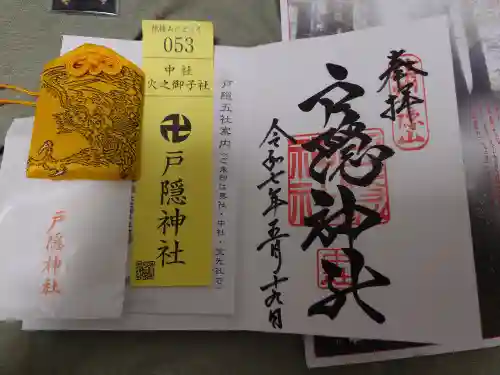 053
中社
火之御子社
卍戸隠神社
戸隠五社案内
戸隠神社
奉拝
戸隠神社
令和七年五月十九日
中社